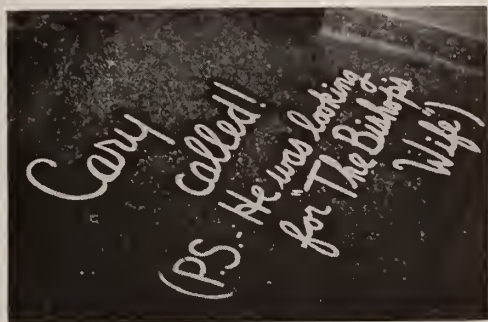 Cary
called!
(P.S.- He was looking
for "The Bishop's
Wife")